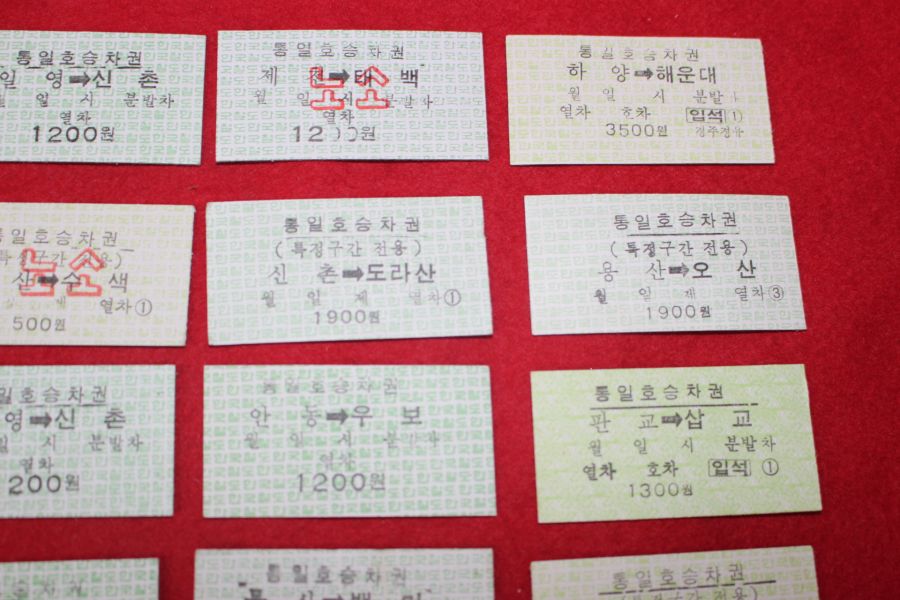 통일호승차권
일 영➡신 촌
월 일 시 분발차
열차
1200원
통일호승차권
제 천➡태 백
월 일 시 분발차
노소
열차
12 0원
통일호승차권
하 양➡해운대
월 일 시 분발
열차 호차 입석 ①
3500원 경주경유
통일호승차권
(특정구간 전용)
노소
산➡수 색
열차①
500원
통일호승차권
(특정구간 전용)
신 촌➡도라산
월 일 제 열차①
1900원
통일호승차권
(특정구간 전용)
용 산➡오 산
월 일 제 열차③
1900원
일호승차권
영➡신 촌
일 시 분발차
열차
200원
통일호승차권
안 동➡우 보
월 일 시 분발차
열차
1200원
통일호승차권
판 교➡삽 교
월 일 시 분발차
열차 호차 입석 ①
1300원
통일호승차권
통일호승차권